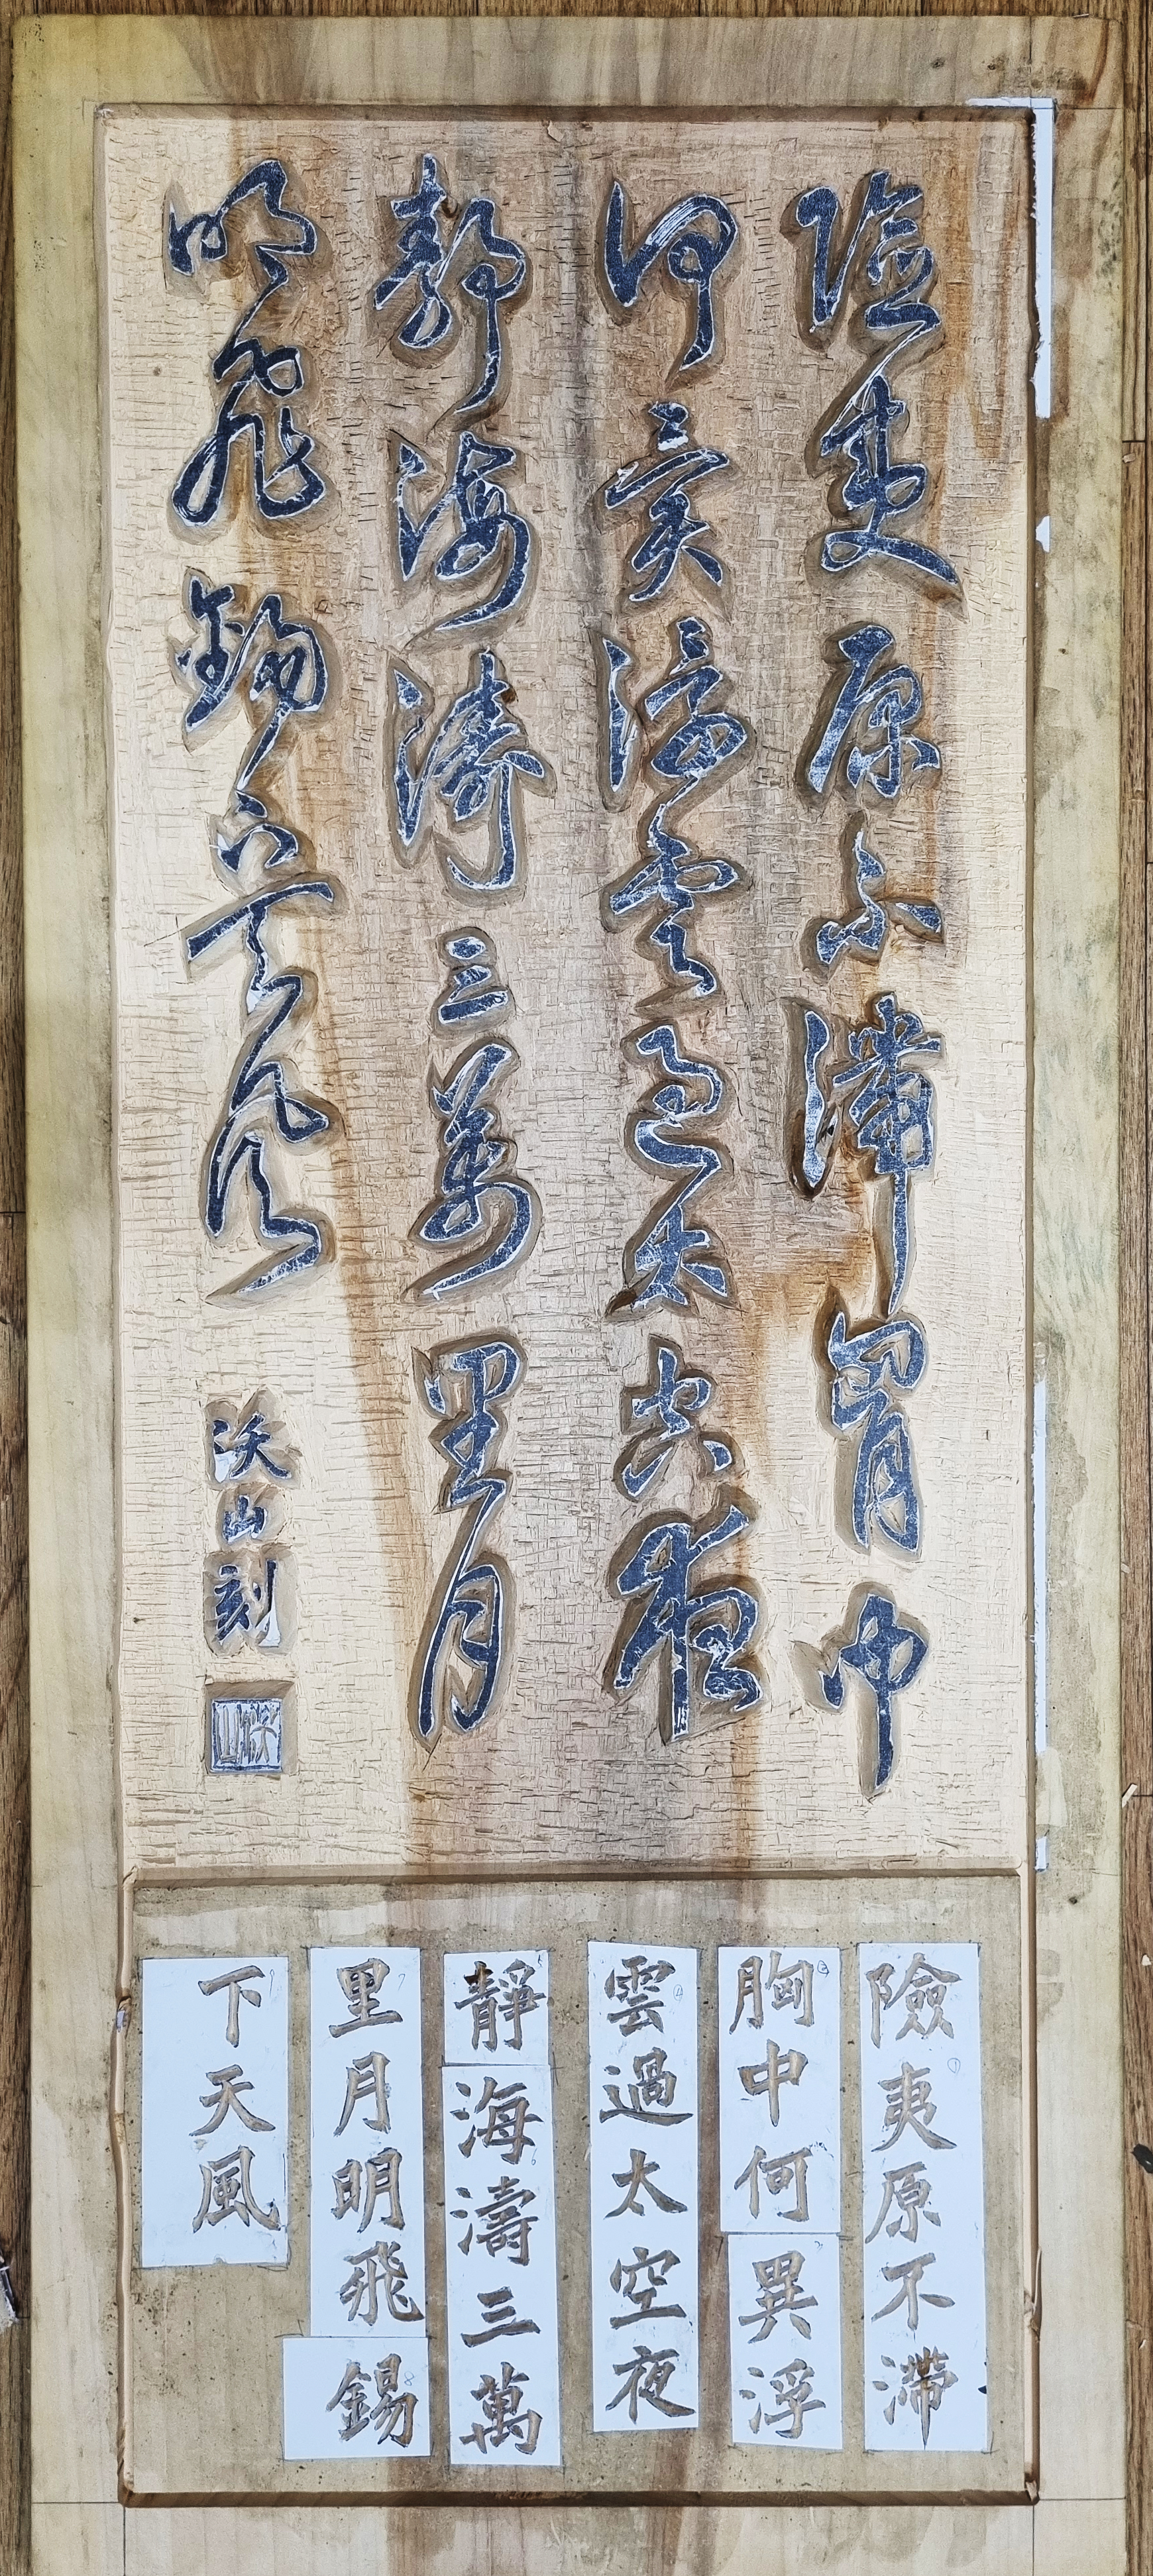 險夷原不滯胷中
何異浮雲過太空夜
靜海濤三萬里月
明飛錫下天風
沃山刻
險夷原不滯
胸中何異浮
雲過太空夜
靜海濤三萬
里月明飛錫
下天風